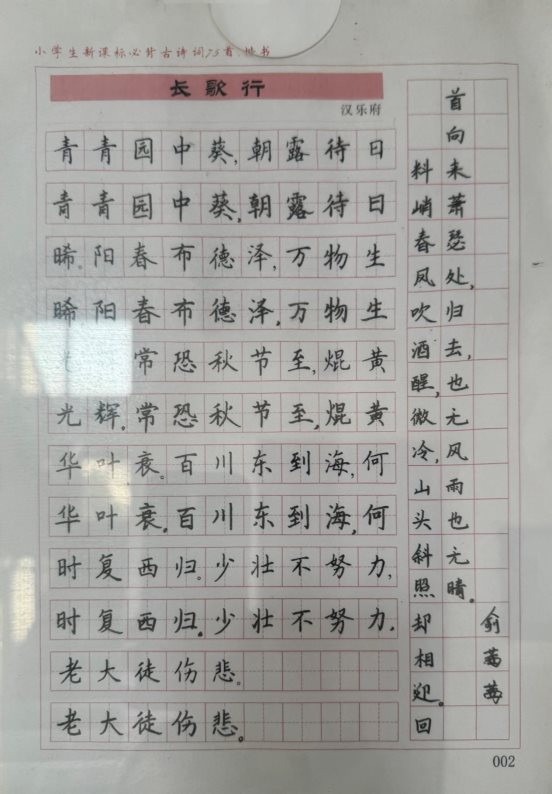 小学生新课标必背古诗词75首·楷书
长歌行
汉乐府
青青园中葵,朝露待日
青青园中葵,朝露待日
晞。阳春布德泽,万物生
晞阳春布德泽,万物生
常恐秋节至,焜黄
光辉,常恐秋节至,焜黄
华叶衰。百川东到海,何
华叶衰,百川东到海,何
时复西归。少壮不努力,
时复西归.少壮不努力.
老大徒伤悲。
老大徒伤悲。
料峭春风吹酒醒,微冷,山头斜照却相迎。回
首向来萧瑟处,归去,也无风雨也无晴。
俞
002